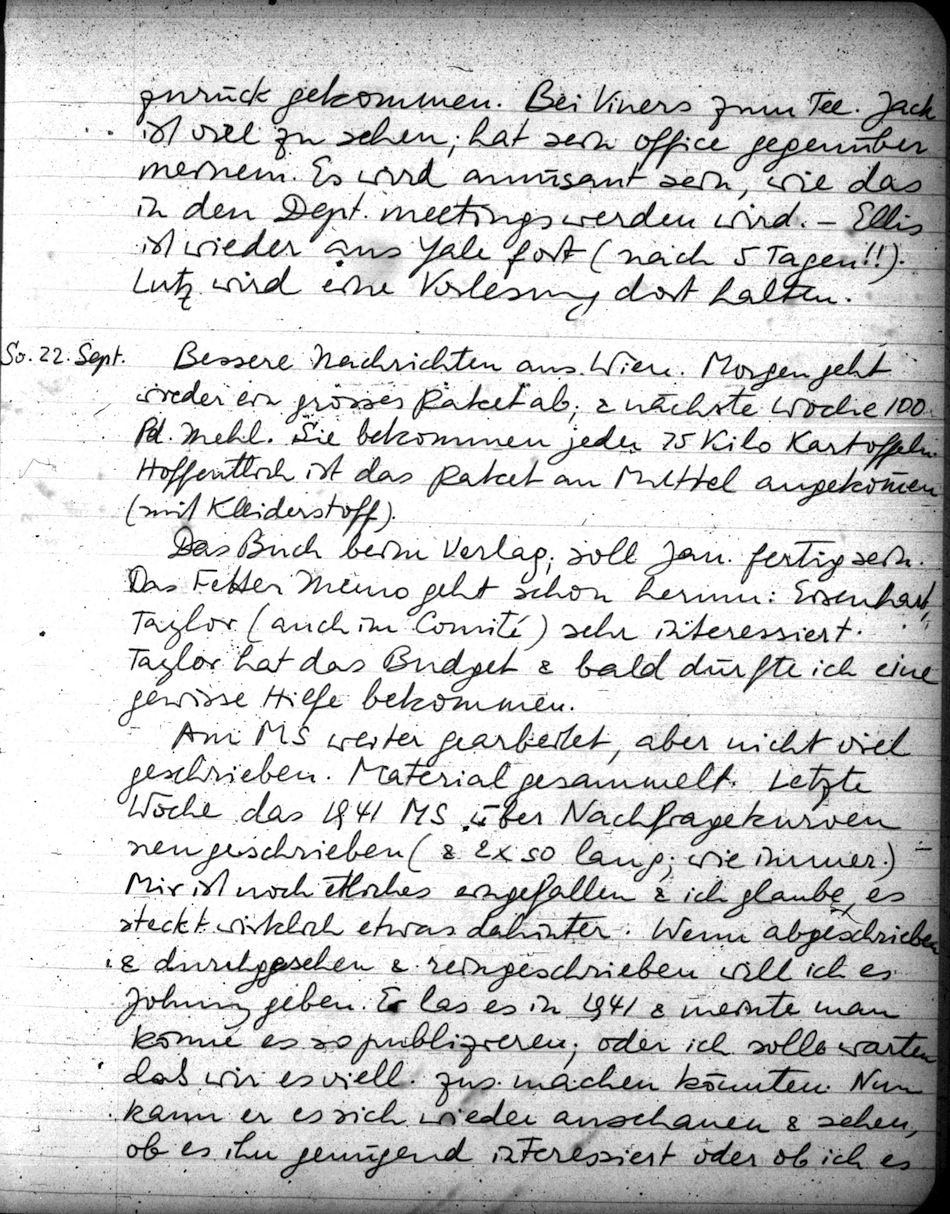 zurück gekommen. Bei Viners zum Tee. Jack
ist viel zu sehen; hat sein office gegenüber
meinem. Es wird amüsant sein, wie das
in den Dept. meetings werden wird. – Ellis
ist wieder aus Yale fort (nach 5 Tagen!!).
Lutz wird eine Vorlesung dort halten.
So. 22. Sept. Bessere Nachrichten aus Wien. Morgen geht
wieder ein grosses Paket ab, & nächste Woche 100
Pd. Mehl. Sie bekommen jeder 75 Kilo Kartoffeln.
Hoffentlich ist das Paket an Mittel angekom̄en
(mit Kleiderstoff).
Das Buch beim Verlag; soll Jan. fertig sein.
Das Fetter Memo geht schon herum: Eisenhart,
Taylor (auch im Comité) sehr interessiert.
Taylor hat das Budget & bald dürfte ich eine
gewisse Hilfe bekommen.
Am MS weiter gearbeitet, aber nicht viel
geschrieben. Material gesammelt. Letzte
Woche das 1941 MS über Nachfragekurven
neu geschrieben (& 2x so lang; wie immer.) –
Mir ist noch etliches eingefallen & ich glaube, es
steckt wirklich etwas dahinter. Wenn abgeschrieben
& durchgesehen & reingeschrieben will ich es
Johnny geben. Er las es in 1941 & meinte man
könne es so publizieren; oder ich solle warten
daß wir es viell. zus. machen könnten. Nun
kann er es sich wieder anschauen & sehen,
ob es ihn genügend interessiert oder ob ich es